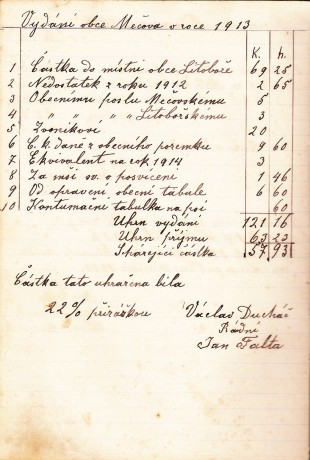 Vydání obce Mečova v roce 1913
K. h.
1 Částka do místní obce Litoboře 69 25
2 Nedostatek z roku 1912 2 65
3 Obecnímu poslu Mečovskému 5
4 " " " Litobořskému 3
5 Zvoníkovi 20
6 C. k. daně z obecního pozemku 9 60
7 Ekvivalent na rok 1914 3
8 Za mši sv. o posvícení 1 46
9 Od opravení obecní tabule 6 60
10 Kontumační tabulka na psi 60
Uhrn vydání 121 16
Uhrn příjmu 63 23
Scházející částka 57 93
Částka tato uhražena bila
22% přirážkou Václav Ducháč
Rádní
Jan Falta